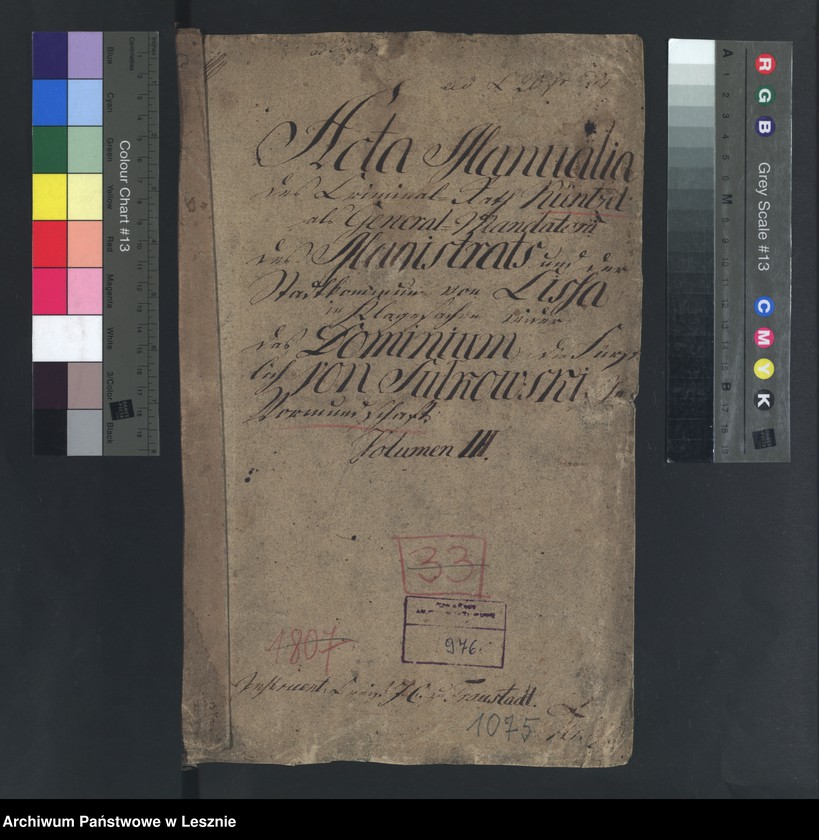 Acta Manualia
des Criminal-Rath Küntzel
als General-Mandatarii
des Magistrats und der
Stadtkommune von Lissa
in Klagesachen wider
das Dominium die Fürst
lich von Sulkowski sche
Vormundschaft.
Volumen III.
33
976.
1807
Instruent. J. C. Fraustadt.
1075
Colour Chart #13
Blue
Cyan
Green
Yellow
Red
Magenta
White
3/Color
Black
Centimetres
Grey Scale #13
R
G
B
C
M
Y
K
A 1 2 3 4 5 6 M 8 9 10 11 12 13 14 15 B 17 18 19
Archiwum Państwowe w Lesznie